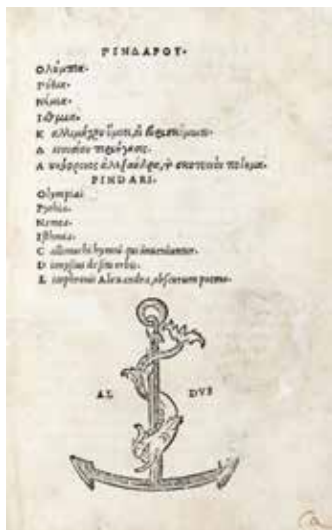 ΠΙΝΔΑΡΟΥ.
Ολύμπια.
Πύθια.
Νέμεα.
Ίσθμια.
Κ αλλιμάχου ὕμνοι, οἱ εὑρισκόμενοι.
Δ ιονυσίου περιήγησις.
Λ υκόφρονος ἀλεξάνδρα, τὸ σκοτεινὸν ποίημα.
PINDARI.
Olympia.
Pythia.
Nemea.
Isthmia.
C allimachi hymni qui inueniuntur.
D ionysius de situ orbis.
L ycophronis Alexandra, obscurum poema.
AL DVS